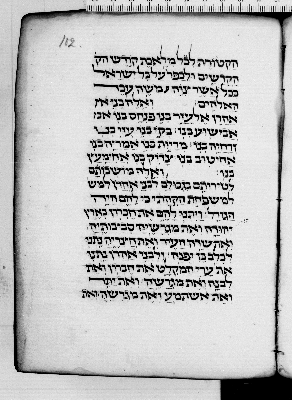 112
הקטורת לכל מלאכת קודש הק
הקדשים ולכפר על כל ישראל
ככל אשר צוה משה עבד
האלהים ואלה בני את
אהרן אלעזר בנו פנחס בנו אבי
אבישוע בנו בקי בנו עזי בנו
זרחיה בנו מריות בנו אמריה בנו
אחיטוב בנו צדוק בנו אחימעץ
בנו ואלה מושבותם
לטירותם בגבולם לבני אהרן למש
למשפחת הקהתי כי להם היה
הגורל ויתנו להם את חברון בארץ
יהודה ואת מגרשיה סביבותיה
ואת שדה העיר ואת חצריה נתנו
לכלב בן יפנה ולבני אהרן נתנו
את ערי המקלט את חברון ואת
לבנה ואת מגרשיה ואת יתר
ואת אשתמע ואת מגרשיה ואת